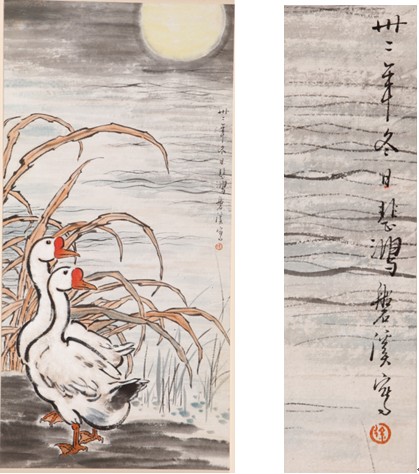 卅二年冬日悲鴻磐溪寫
徐
卅二年冬日悲鴻磐溪寫
徐